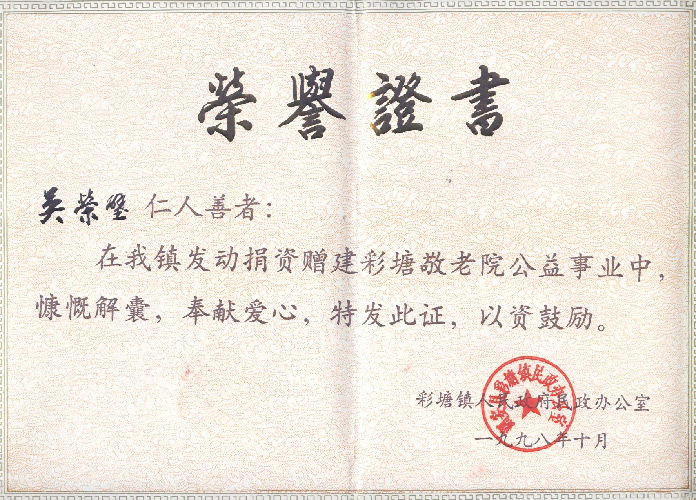 榮譽證書
吴荣璧 仁人善者：
在我镇发动捐资赠建彩塘敬老院公益事业中，
慷慨解囊，奉献爱心，特发此证，以资鼓励。
彩塘镇人民政府民政办公室
一九九八年十月